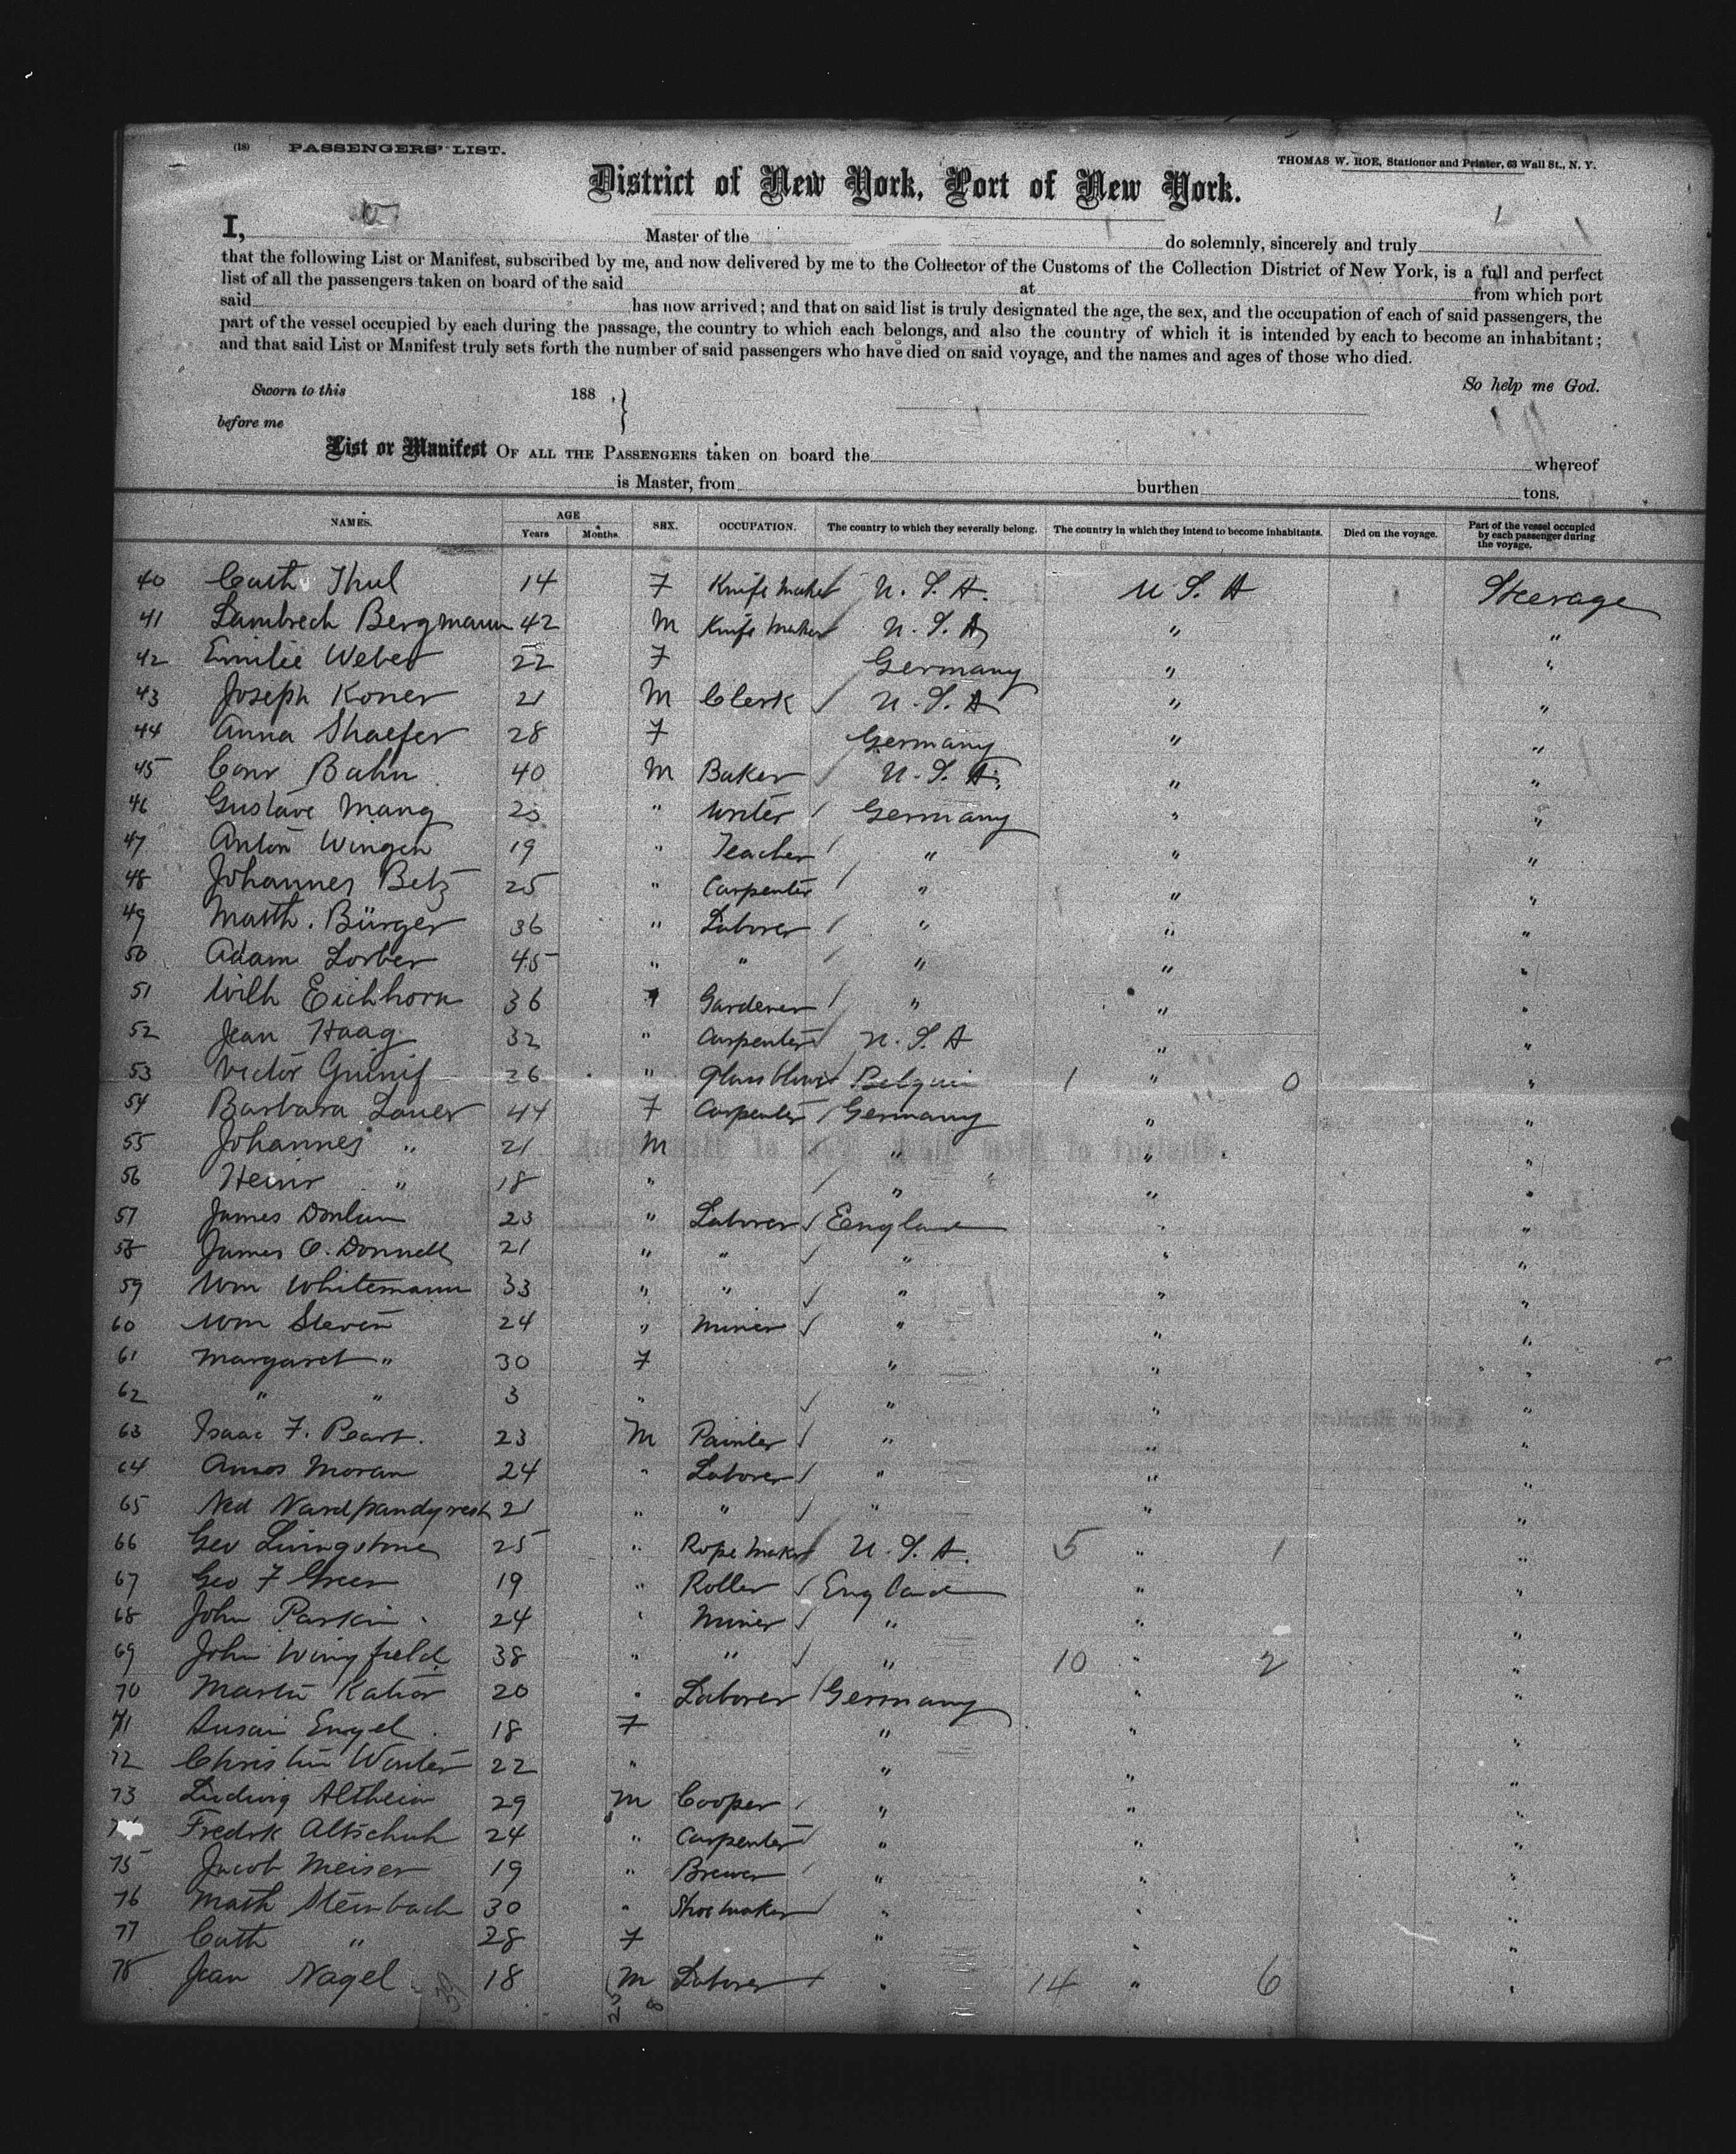 (18) PASSENGERS' LIST.
THOMAS W. ROE, Stationer and Printer, 63 Wall St., N. Y.
District of New York, Port of New York.
I, Master of the do solemnly, sincerely and truly
that the following List or Manifest, subscribed by me, and now delivered by me to the Collector of the Customs of the Collection District of New York, is a full and perfect
list of all the passengers taken on board of the said at from which port
said has now arrived; and that on said list is truly designated the age, the sex, and the occupation of each of said passengers, the
part of the vessel occupied by each during the passage, the country to which each belongs, and also the country of which it is intended by each to become an inhabitant;
and that said List or Manifest truly sets forth the number of said passengers who have died on said voyage, and the names and ages of those who died.
So help me God.
Sworn to this 188 ,
before me
List or Manifest OF ALL THE PASSENGERS taken on board the whereof
is Master, from burthen tons.
NAMES. AGE Years Months. SEX. OCCUPATION. The country to which they severally belong. The country in which they intend to become inhabitants. Died on the voyage. Part of the vessel occupied by each passenger during the voyage.
40 Cath Thul 14 F Knife Maker U. S. A. U S A Steerage
41 Lambrech Bergmann 42 M Knife Maker U. S. A " "
42 Emilie Weber 22 F Germany " "
43 Joseph Koner 21 M Clerk U. S. A " "
44 Anna Shaefer 28 F Germany " "
45 Conr Bahn 40 M Baker U. S. A. " "
46 Gustave Mang 23 " Writer Germany " "
47 Anton Wingen 19 " Teacher " " "
48 Johannes Betz 25 " Carpenter " " "
49 Matth. Bürger 36 " Laborer " " "
50 Adam Lorber 45 " " " " "
51 Wilh Eichhorn 36 " Gardener " " "
52 Jean Haag 32 " Carpenter U. S. A " "
53 Victor 26 " Glass blower Belgium 1 " 0 "
54 Barbara Lauer 44 F Carpenter Germany " "
55 Johannes " 21 M " " "
56 Heinr " 18 " " " "
57 James Donlan 23 " Laborer England " "
58 James O. Donnell 21 " " " " "
59 Wm Whitemann 33 " " " " "
60 Wm Steven 24 " Miner " " "
61 Margaret " 30 F " " "
62 " " 3 " " " "
63 Isaac F. Peart. 23 M Painter " " "
64 Amos Moran 24 " Laborer " " "
65 Ned 21 " " " " "
66 Geo Livingstone 25 " Rope Maker U. S. A. 5 " 1 "
67 Geo F Green 19 " Roller England " "
68 John Parkin 24 " Miner " " "
69 John Wingfield 38 " " " 10 " 2 "
70 Martin Kator 20 " Laborer Germany " "
71 Susan Engel 18 F " " "
72 Christin Winter 22 " " " "
73 Ludwig Altheim 29 M Cooper " " "
7 Fredrk Altschuh 24 " Carpenter " " "
75 Jacob Meiser 19 " Brewer " " "
76 Math Steinbach 30 " Shoemaker " " "
77 Cath " 28 F " " "
78 Jean Nagel 18 M Laborer " 14 " 6 "
39 25 8